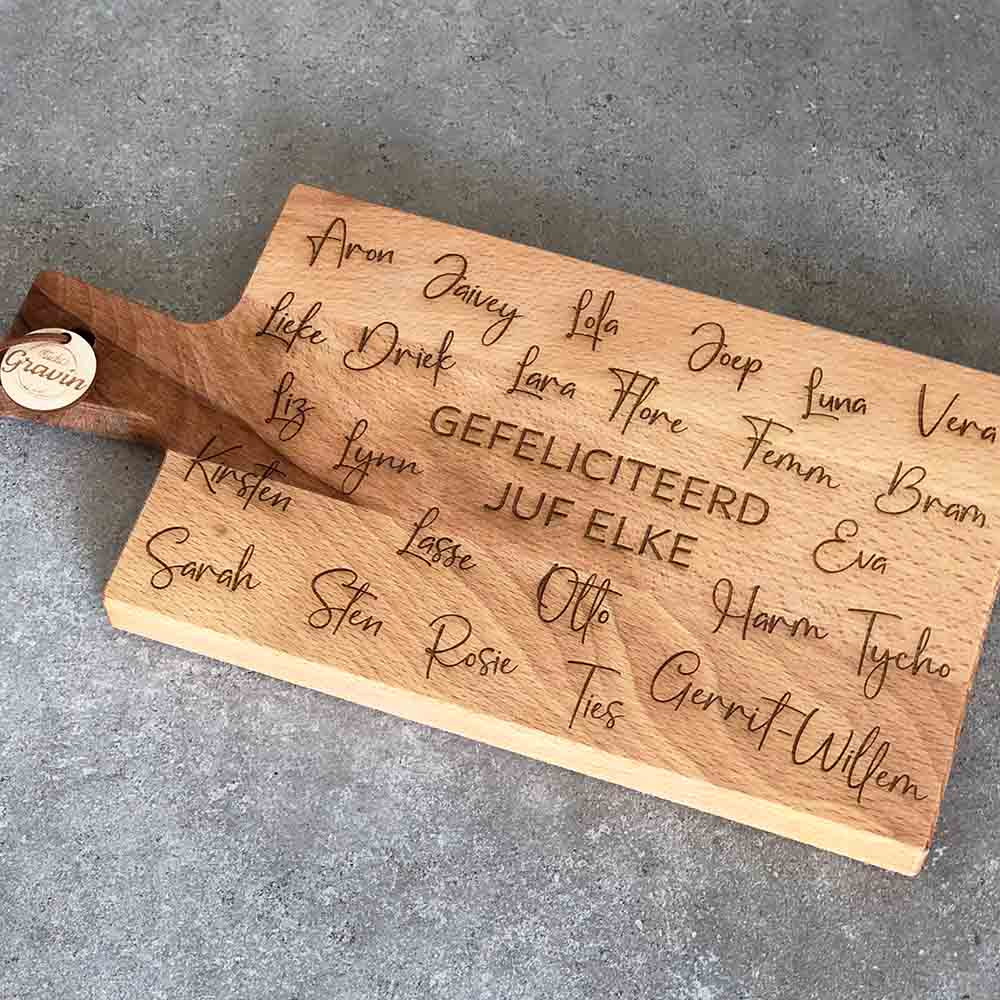 Aron
Jaivey
Lola
Joep
Luna
Vera
Lieke
Driek
Lara
Flore
Femm
Bram
Liz
Lynn
GEFELICITEERD
JUF ELKE
Eva
Kirsten
Lasse
Otto
Harm
Tycho
Sarah
Sten
Rosie
Ties
Gerrit-Willem
Gravin